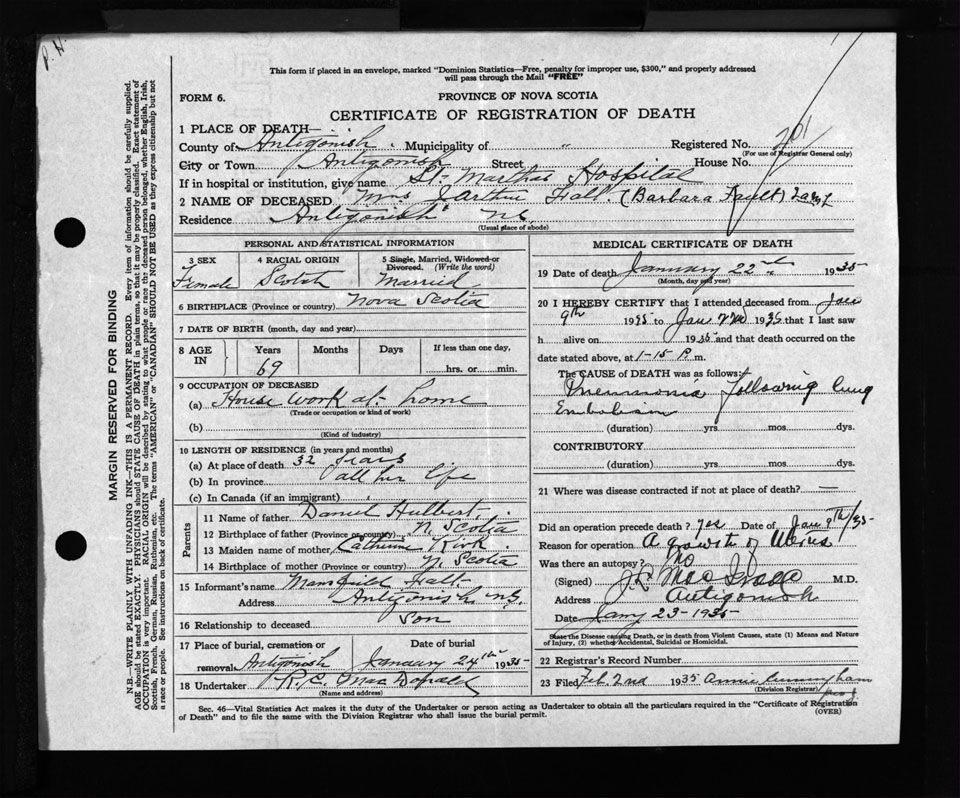 P. H.
This form if placed in an envelope, marked "Dominion Statistics—Free, penalty for improper use, $300," and properly addressed
will pass through the Mail "FREE"
FORM 6.
PROVINCE OF NOVA SCOTIA
CERTIFICATE OF REGISTRATION OF DEATH
1 PLACE OF DEATH—
County of Antigonish. Municipality of " Registered No. 201
(For use of Registrar General only)
City or Town Antigonish Street House No.
If in hospital or institution, give name St. Marthas Hospital
2 NAME OF DECEASED Mrs Arthur Falt. (Barbara
Residence Antigonish NS
(Usual place of abode)
PERSONAL AND STATISTICAL INFORMATION
3 SEX Female
4 RACIAL ORIGIN Scotch
5 Single, Married, Widowed or
Divorced. (Write the word)
Married
6 BIRTHPLACE (Province or country) Nova Scotia
7 DATE OF BIRTH (month, day and year)
8 AGE IN Years Months Days If less than one day,
69 hrs. or min.
9 OCCUPATION OF DECEASED
(a) House work at home
(Trade or occupation or kind of work)
(b)
(Kind of industry)
10 LENGTH OF RESIDENCE (in years and months)
(a) At place of death 32 years
(b) In province all her life
(c) In Canada (if an immigrant)
Parents
11 Name of father Daniel Hulbert
12 Birthplace of father (Province or country) N. Scotia
13 Maiden name of mother Catherine Kirk
14 Birthplace of mother (Province or country) N. Scotia
15 Informant's name Mansfield Falt
Address Antigonish, NS.
16 Relationship to deceased Son
17 Place of burial, cremation or Date of burial
removal Antigonish January 24th 1935
18 Undertaker R.C. MacDonald
(Name and address)
MEDICAL CERTIFICATE OF DEATH
19 Date of death January 22nd 1935
(Month, day and year)
20 I HEREBY CERTIFY that I attended deceased from Jan
9th 1935 to Jan 22nd 1935 that I last saw
h alive on 1935 and that death occurred on the
date stated above, at 1-15 P m.
The CAUSE of DEATH was as follows:
Pneumonia following lung
Embolism
(duration) yrs mos dys.
CONTRIBUTORY
(duration) yrs. mos. dys.
21 Where was disease contracted if not at place of death? —
Did an operation precede death? yes Date of Jan 9th/35
Reason for operation A growth of Uterus
Was there an autopsy? No
(Signed) M.D.
Address Antigonish
Date Jany 23-1935
State the Disease causing Death, or in death from Violent Causes, state (1) Means and Nature
of Injury, (2) whether Accidental, Suicidal or Homicidal.
22 Registrar's Record Number
23 Filed Feb 2nd 1935 Annie Cunningham
(Division Registrar)
Sec. 46—Vital Statistics Act makes it the duty of the Undertaker or person acting as Undertaker to obtain all the particulars required in the "Certificate of Registration
of Death" and to file the same with the Division Registrar who shall issue the burial permit.
(OVER)
MARGIN RESERVED FOR BINDING
N.B.—WRITE PLAINLY WITH UNFADING INK—THIS IS A PERMANENT RECORD. Every item of information should be carefully supplied.
AGE should be stated EXACTLY. PHYSICIANS should STATE CAUSE OF DEATH in plain terms, so that it may be properly classified. Exact statement of
OCCUPATION is very important. RACIAL ORIGIN will be described by stating to what people or race the deceased person belonged, whether English, Irish,
Scottish, French, German, Russian, Ruthenian, etc. The terms "AMERICAN" or "CANADIAN" SHOULD NOT BE USED as they express citizenship but not
a race or people. See instructions on back of certificate.